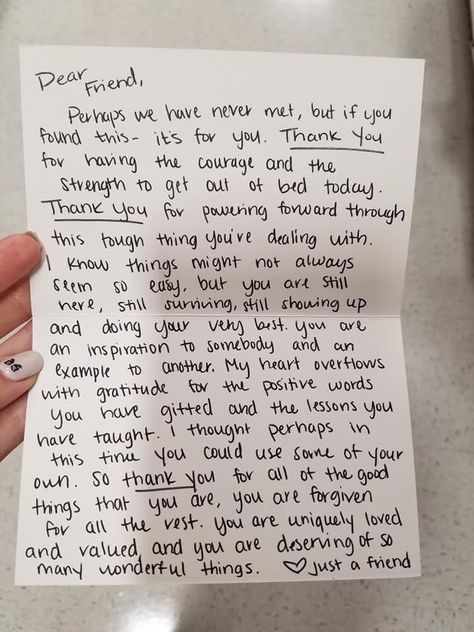 Dear Friend,
Perhaps we have never met, but if you
found this- it's for you. Thank You
for having the courage and the
strength to get out of bed today.
Thank You for powering forward through
this tough thing you've dealing with.
I know things might not always
seem so easy, but you are still
here, still surviving, still showing up
and doing your very best. You are
an inspiration to somebody and an
example to another. My heart overflows
with gratitude for the positive words
you have gifted and the lessons you
have taught. I thought perhaps in
this time you could use some of your
own. So thank you for all of the good
things that you are, you are forgiven
for all the rest. You are uniquely loved
and valued, and you are deserving of so
many wonderful things. ♡ just a friend